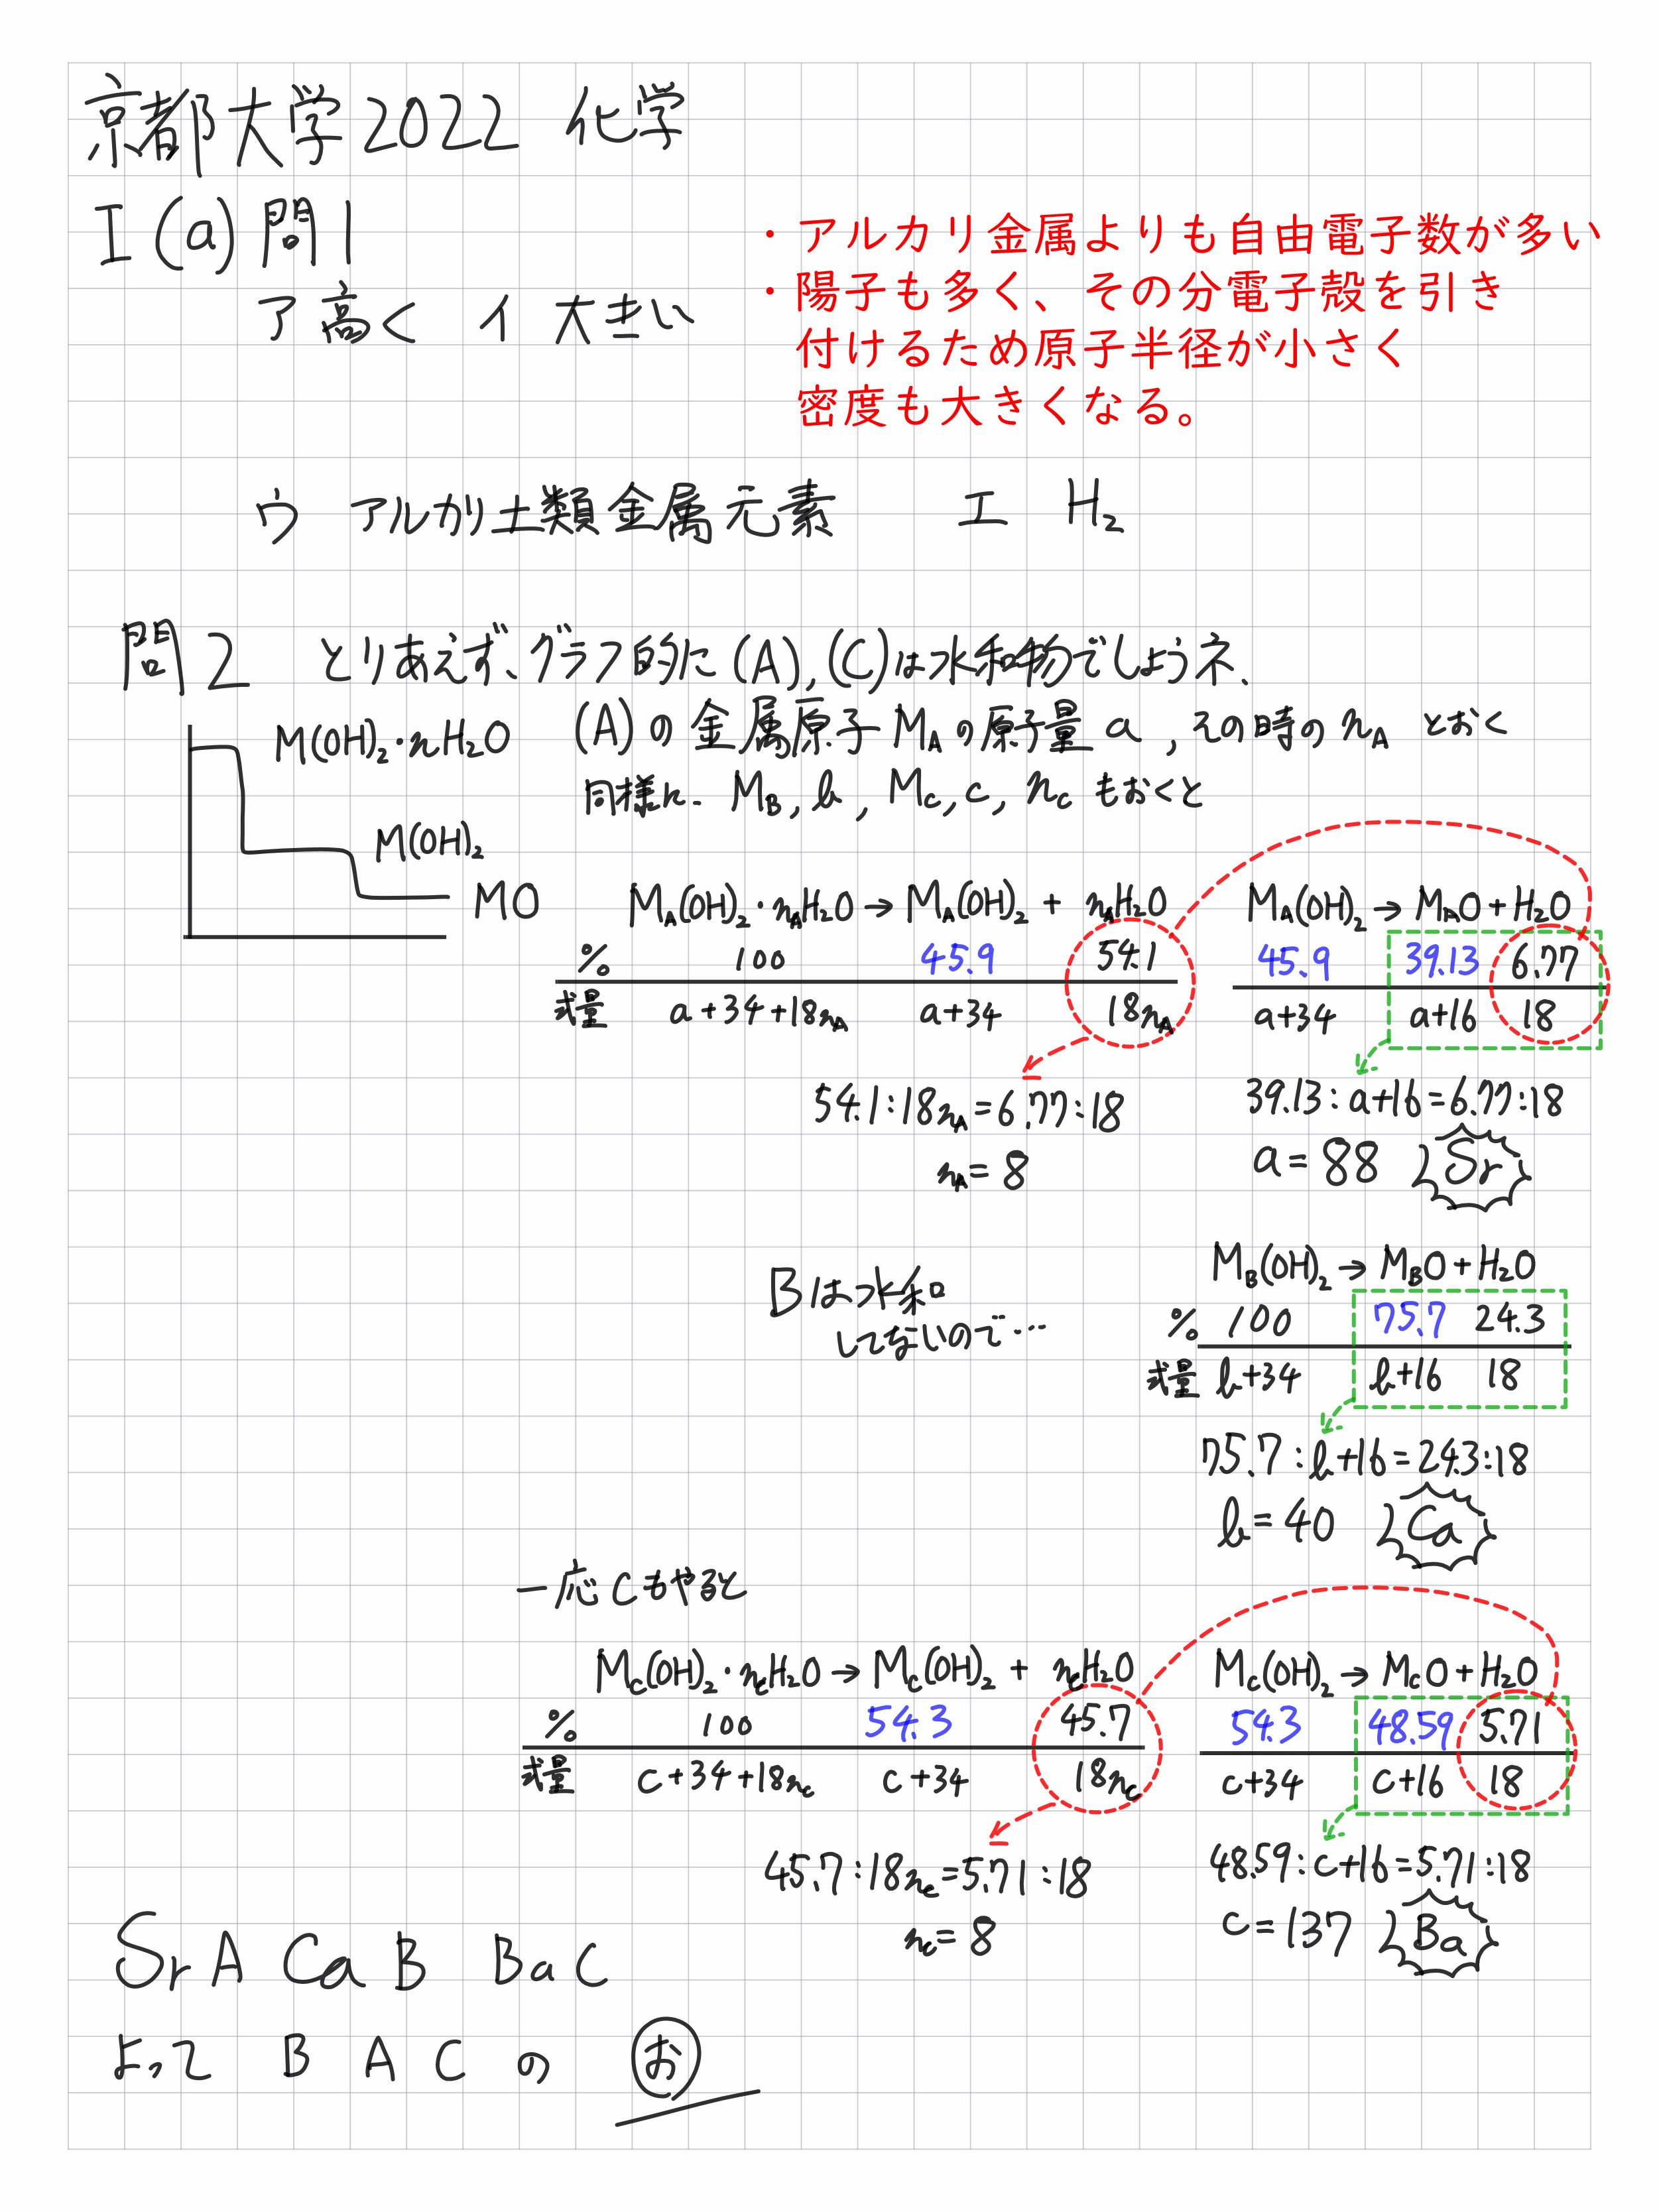 京都大学2022 化学
I (a) 問1
ア 高く イ 大きい
・アルカリ金属よりも自由電子数が多い
・陽子も多く、その分電子殻を引き
付けるため原子半径が小さく
密度も大きくなる。
ウ アルカリ土類金属元素 エ H₂
問2 とりあえず、グラフ的に(A),(C)は水和物でしょうネ、
(A)の金属原子 M_A の原子量 a , その時の n_A とおく
同様に M_B, b, M_C, c, n_C もおくと
M(OH)₂・nH₂O
M(OH)₂
MO
M_A(OH)₂・n_AH₂O → M_A(OH)₂ + n_AH₂O
% 100 45.9 54.1
式量 a+34+18n_A a+34 18n_A
M_A(OH)₂ → M_AO + H₂O
45.9 39.13 6.77
a+34 a+16 18
54.1:18n_A=6.77:18
n_A=8
39.13:a+16=6.77:18
a=88 Sr
Bは水和
してないので…
M_B(OH)₂ → M_BO + H₂O
% 100 75.7 24.3
式量 b+34 b+16 18
75.7:b+16=24.3:18
b=40 Ca
一応Cもやると
M_C(OH)₂・n_CH₂O → M_C(OH)₂ + n_CH₂O
% 100 54.3 45.7
式量 c+34+18n_C c+34 18n_C
M_C(OH)₂ → M_CO + H₂O
54.3 48.59 5.71
c+34 c+16 18
45.7:18n_C=5.71:18
n_C=8
48.59:c+16=5.71:18
c=137 Ba
Sr A Ca B Ba C
よって B A C の お